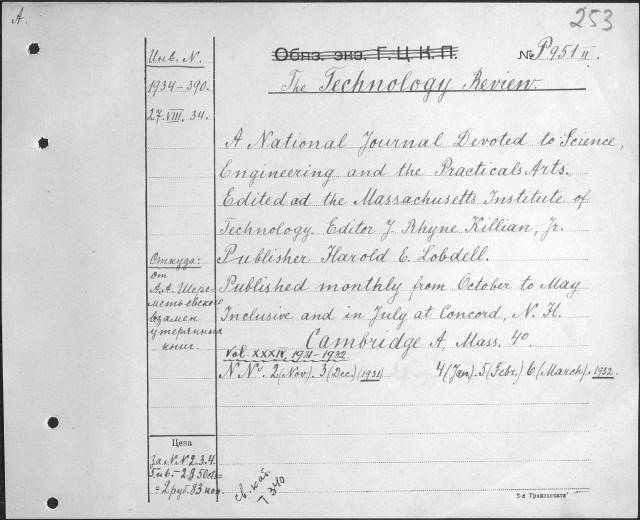 A.
253
Инв. N.
1934-390.
27.VIII.34.
Обяз. экз. Г.Ц.К.П.
№ P951 II.
The Technology Review.
A National Journal Devoted to Science,
Engineering and the Practicals Arts.
Edited ad the Massachusetts Institute of
Technology. Editor J. Rhyne Killian, Jr.
Publisher Harold E. Lobdell.
Published monthly from October to May
Inclusive and in July at Concord, N. H.
Cambridge A, Mass. 4°
Vol. XXXIV, 1931-1932
N Nr. 2 (Nov). 3 (Dec.) (1931) 4 (Jan). 5 (Febr.) 6 (March). 1932.
Откуда:
от
А.А. Шере-
метьевского
взамен
утерянных
книг.
Цена
За N.N 2.3.4.
5 и 6.- 2 $ 50 cts=
= 2 руб. 83 коп.
св. каб.
7-340
5-я Транспечати